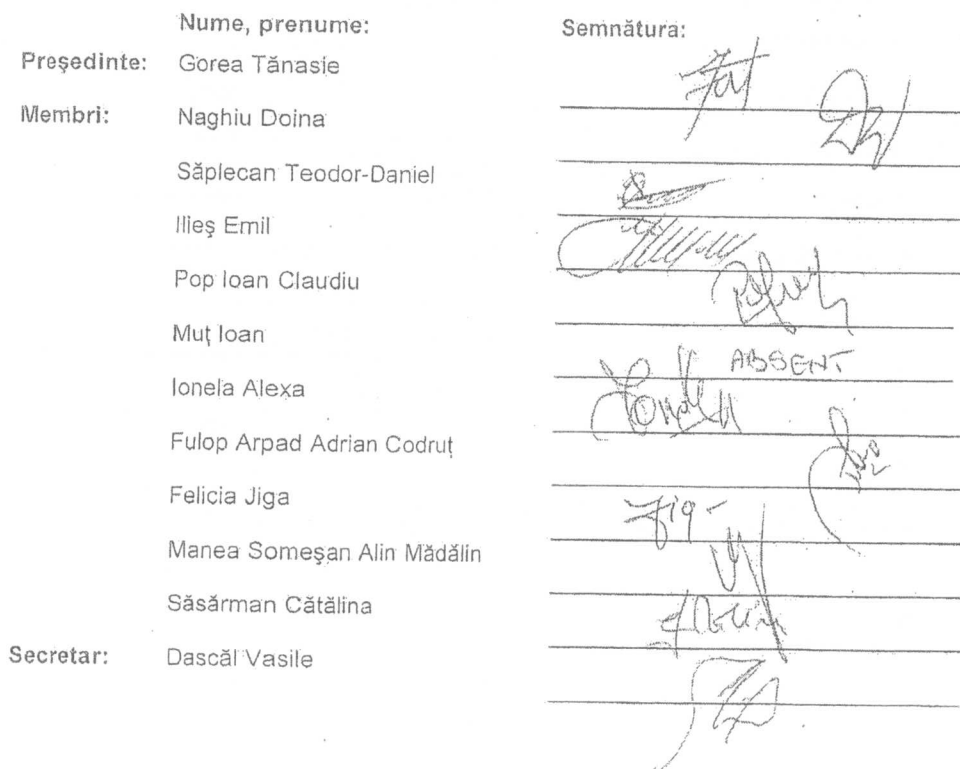 Nume, prenume: Semnătura:
Preşedinte: Gorea Tănasie
Membri: Naghiu Doina
Săplecan Teodor-Daniel
Ilieş Emil
Pop Ioan Claudiu
Muţ Ioan ABSENT
Ionela Alexa
Fulop Arpad Adrian Codruţ
Felicia Jiga
Manea Someşan Alin Mădălin
Săsărman Cătălina
Secretar: Dascăl Vasile